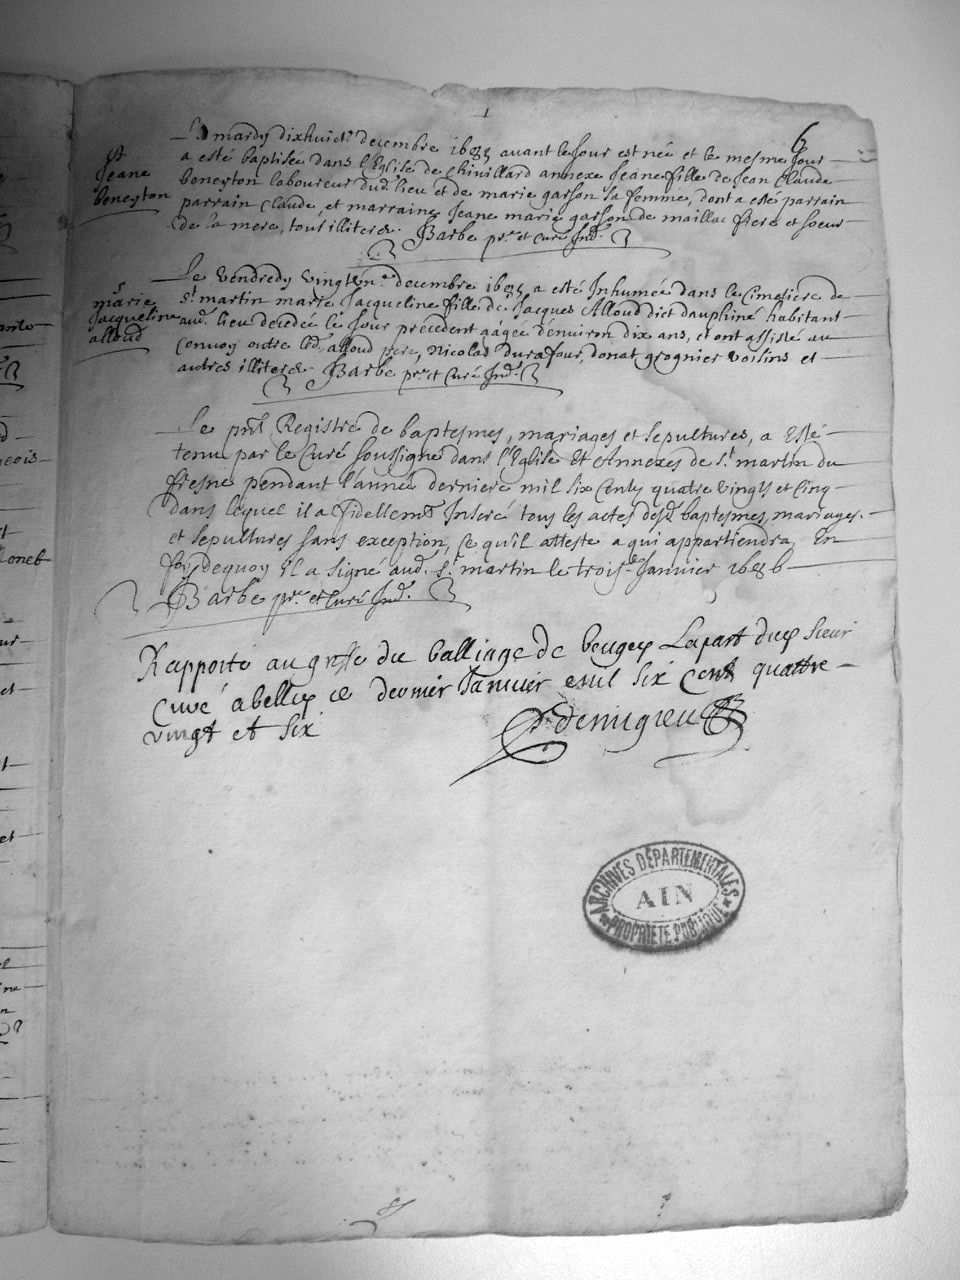 6
Le mardy dixhuict. decembre 1685 avant le jour est née et le mesme jour
a esté baptisée dans l'Eglise de Chivillard annexe Jeane fille de Jean Claude
boneyton laboureur dud. lieu et de marie garson sa femme, dont a esté parrain
parrain Claude, et marraine Jeane marie garson de maillac frere et soeur
de la mere, tous illiteres. Barbe pr. et Curé Ind.
B
Jeane
boneyton
Le vendredy vingt decembre 1685 a esté Inhumée dans le Cimetiere de
St martin marie Jacqueline fille de Jacques Alloud dict dauphiné habitant
aud. lieu decedée le jour precedent aagée d'environ dix ans, et ont assisté au
Convoy outre led. alloud pere, Nicolas Durafour, donat grognier voisins et
autres illiteres. Barbe pr. et Curé Ind.
S
marie
Jacqueline
alloud
Le pnt Registre de baptesmes, mariages et sepultures, a Esté
tenu par le Curé soussigné dans l'Eglise Et Annexes de St martin du
fresne pendant l'année derniere mil six Cents quatre vingts et Cinq
dans lequel il a fidellemt Inseré tous les actes desd. baptesmes, mariages.
et sepultures sans exception, Ce qu'il atteste a qui appartiendra, En
foy dequoy Il a signé aud. St martin le trois Janvier 1686
Barbe pr. et Curé Ind.
Rapporté au greffe du balliage de beugey La part dud sieur
Curé a belley ce dernier Janvier mil six Cent quattre
vingt et six
ARCHIVES DÉPARTEMENTALES
AIN
PROPRIETE PUBLIQUE